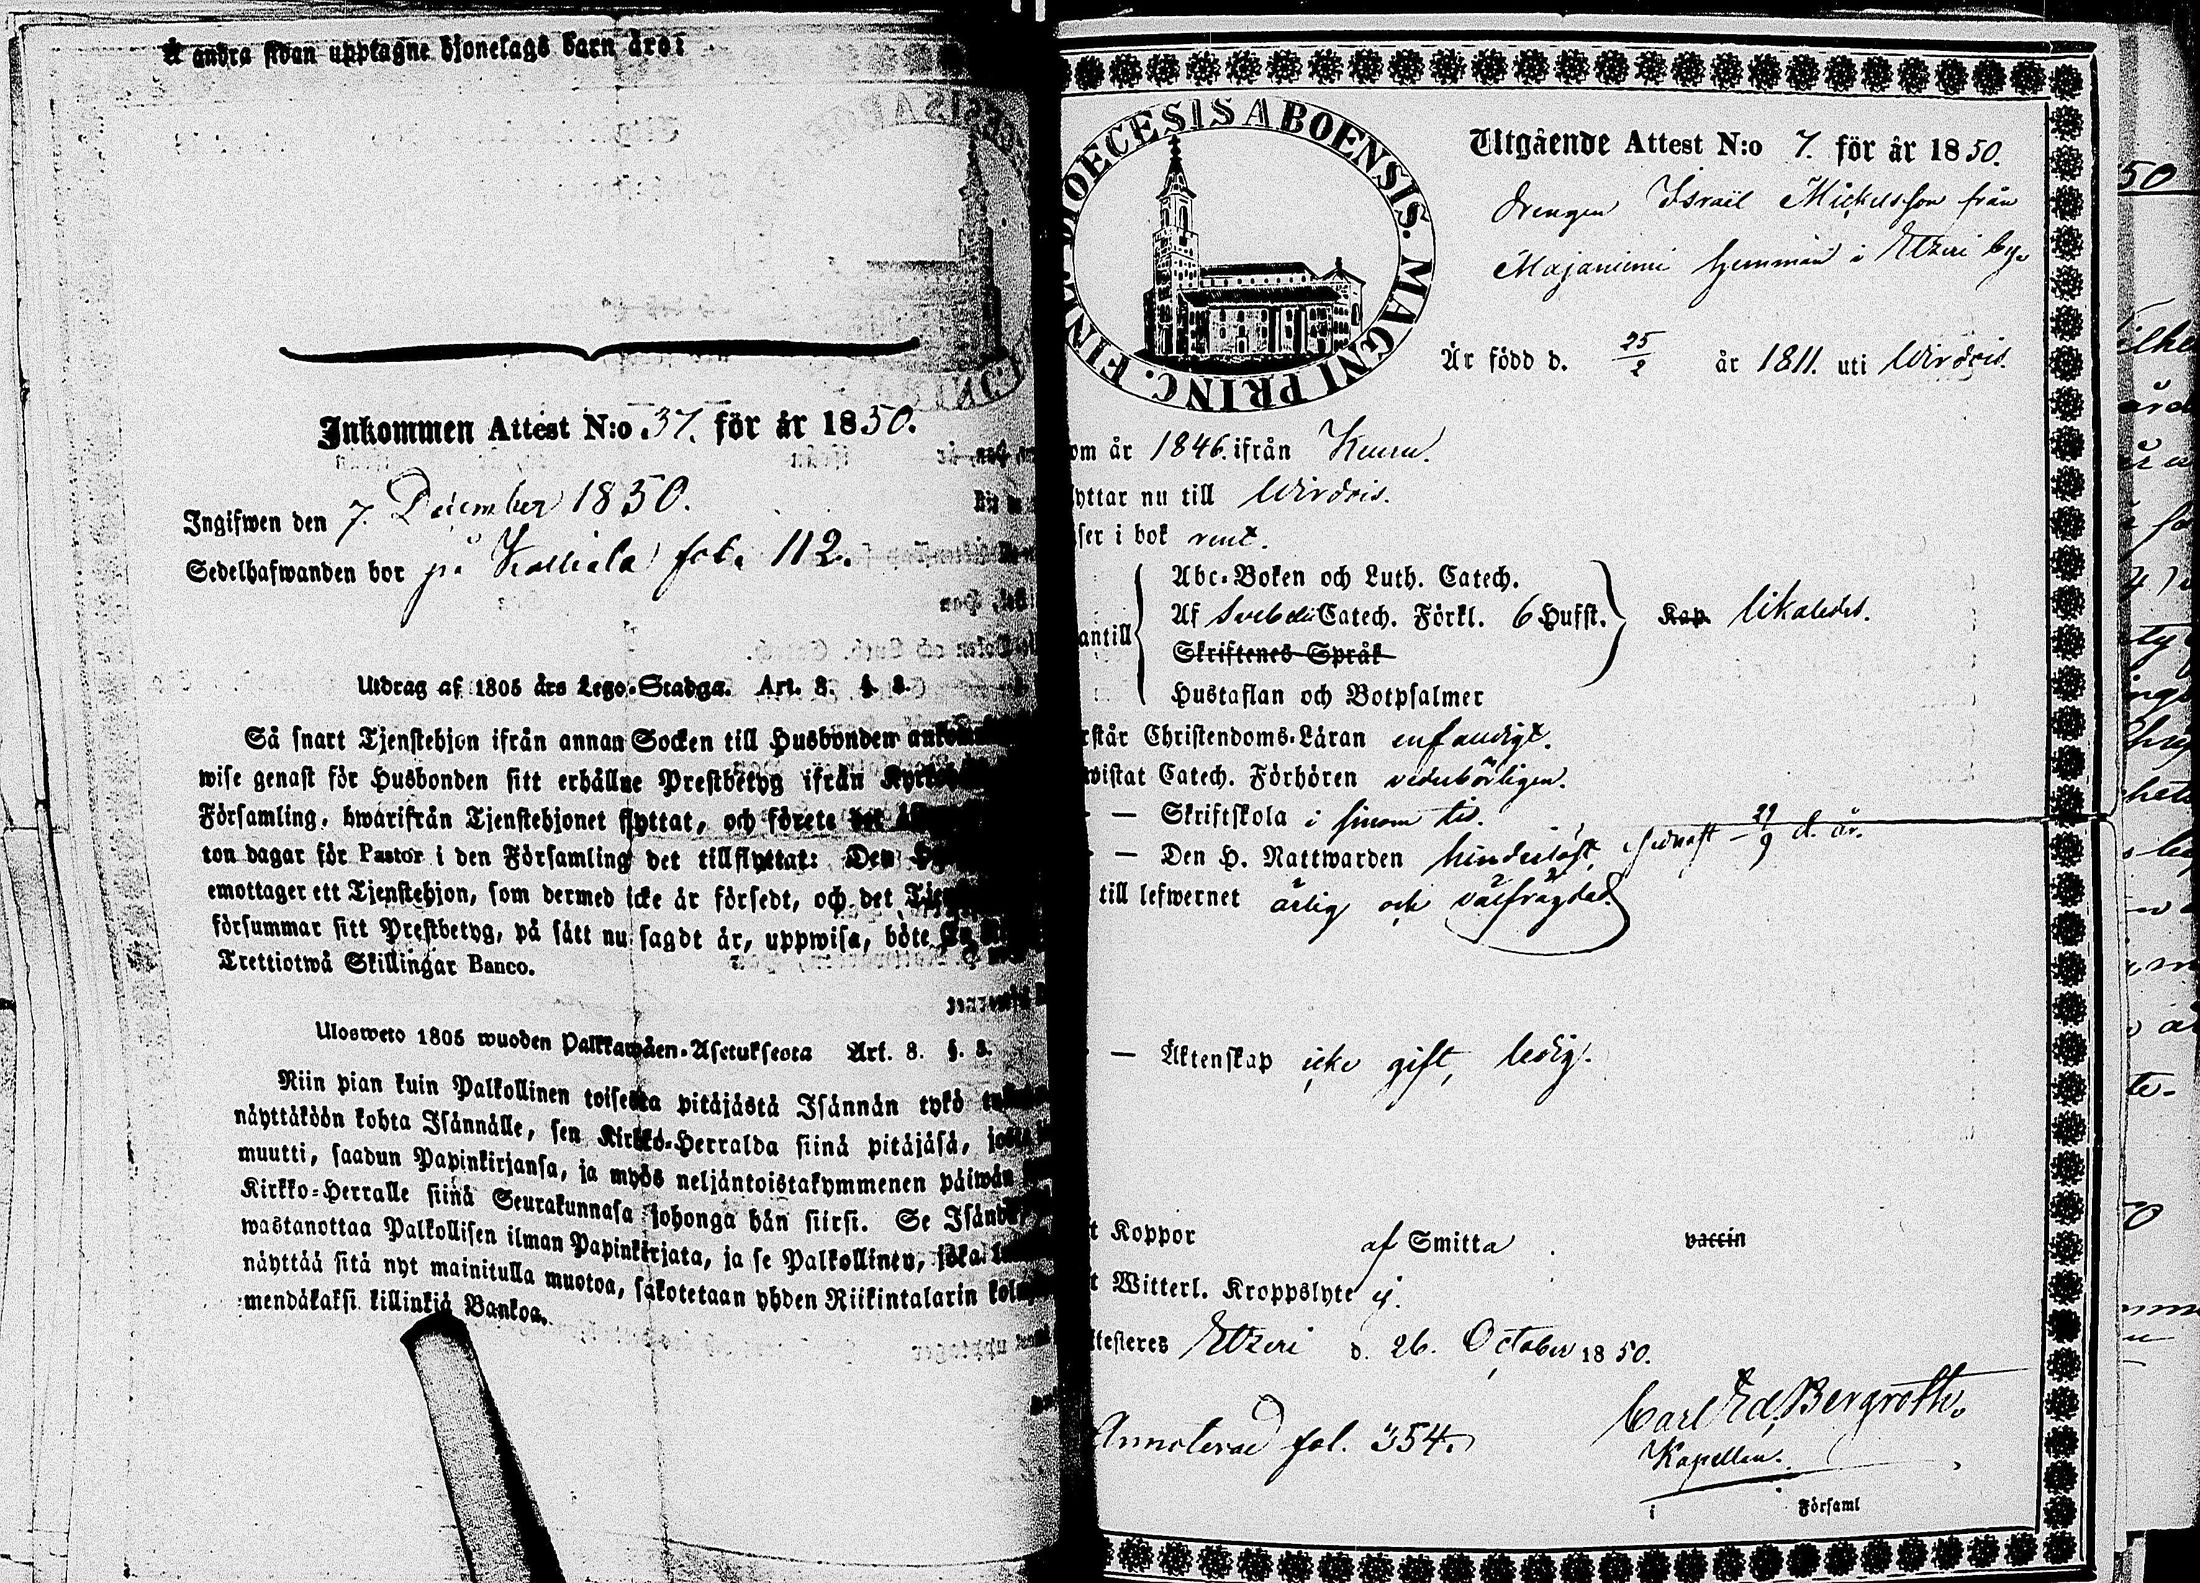 Å andra sidan upptagne hjonelags barn äro:
Inkommen Attest N:o 37. för år 1850.
Ingifwen den 7. December 1850.
Sedelhafwanden bor på fol. 112.
Utdrag af 1805 års Lego-Stadga. Art. 8. §. 8.
Så snart Tjenstehjon ifrån annan Socken till Husbonden
wise genast för Husbonden sitt erhållne Prestbetyg ifrån
Församling, hwarifrån Tjenstehjonet flyttat, och förete det
ton dagar för Pastor i den Församling det tillflyttat: Den
emottager ett Tjenstehjon, som dermed icke är försedt, och det
försummar sitt Prestbetyg, på sätt nu sagdt är, uppwisa, böte En
Trettiotwå Skillingar Banco.
Ulosweto 1805 wuoden Palkkawäen-Asetuksesta Art. 8. §. 8.
Niin pian kuin Palkollinen toisesta pitäjästä Isännän tykö
näyttäköön kohta Isännälle, sen Kirkko-Herralda siinä pitäjäsä,
muutti, saadun Papinkirjansa, ja myös neljäntoistakymmenen päiwän
Kirkko-Herralle siinä Seurakunnasa johonga hän siirsi. Se
wastanottaa Palkollisen ilman Papinkirjata, ja se Palkollinen, joka
näyttää sitä nyt mainitulla muotoa, sakotetaan yhden Riikintalarin
mendäkaksi killinkiä Bankoa.
DIOECESIS ABOENSIS. MAGNI PRINC. FINL.
Utgående Attest N:o 7. för år 1850.
Drengen Israël Mickelsson från
Majaniemi hemman i Etzeri by.
Är född d. 25/2 år 1811. uti Wirdois.
om år 1846. ifrån Kuru.
yttar nu till Wirdois.
ser i bok rent.
antill
Abc-Boken och Luth. Catech.
Af Svebelii Catech. Förkl. 6 Hufst. Kap. likaledes.
Skriftenes Språk
Hustaflan och Botpsalmer
rstår Christendoms-Läran enfaldigt.
wistat Catech. Förhören vederbörligen.
— Skriftskola i sinom tid.
— Den H. Nattwarden hinderlöst, sednast 29/9 d. år.
till lefwernet ärlig och välfrägdad.
— Äktenskap icke gift, ledig.
t Koppor af Smitta vaccin
t Witterl. Kroppslyte ej.
ttesteres Etzeri d. 26. October 1850.
Carl Ed. Bergroth.
Annoterad fol. 354.
Kapellan.
i Församl